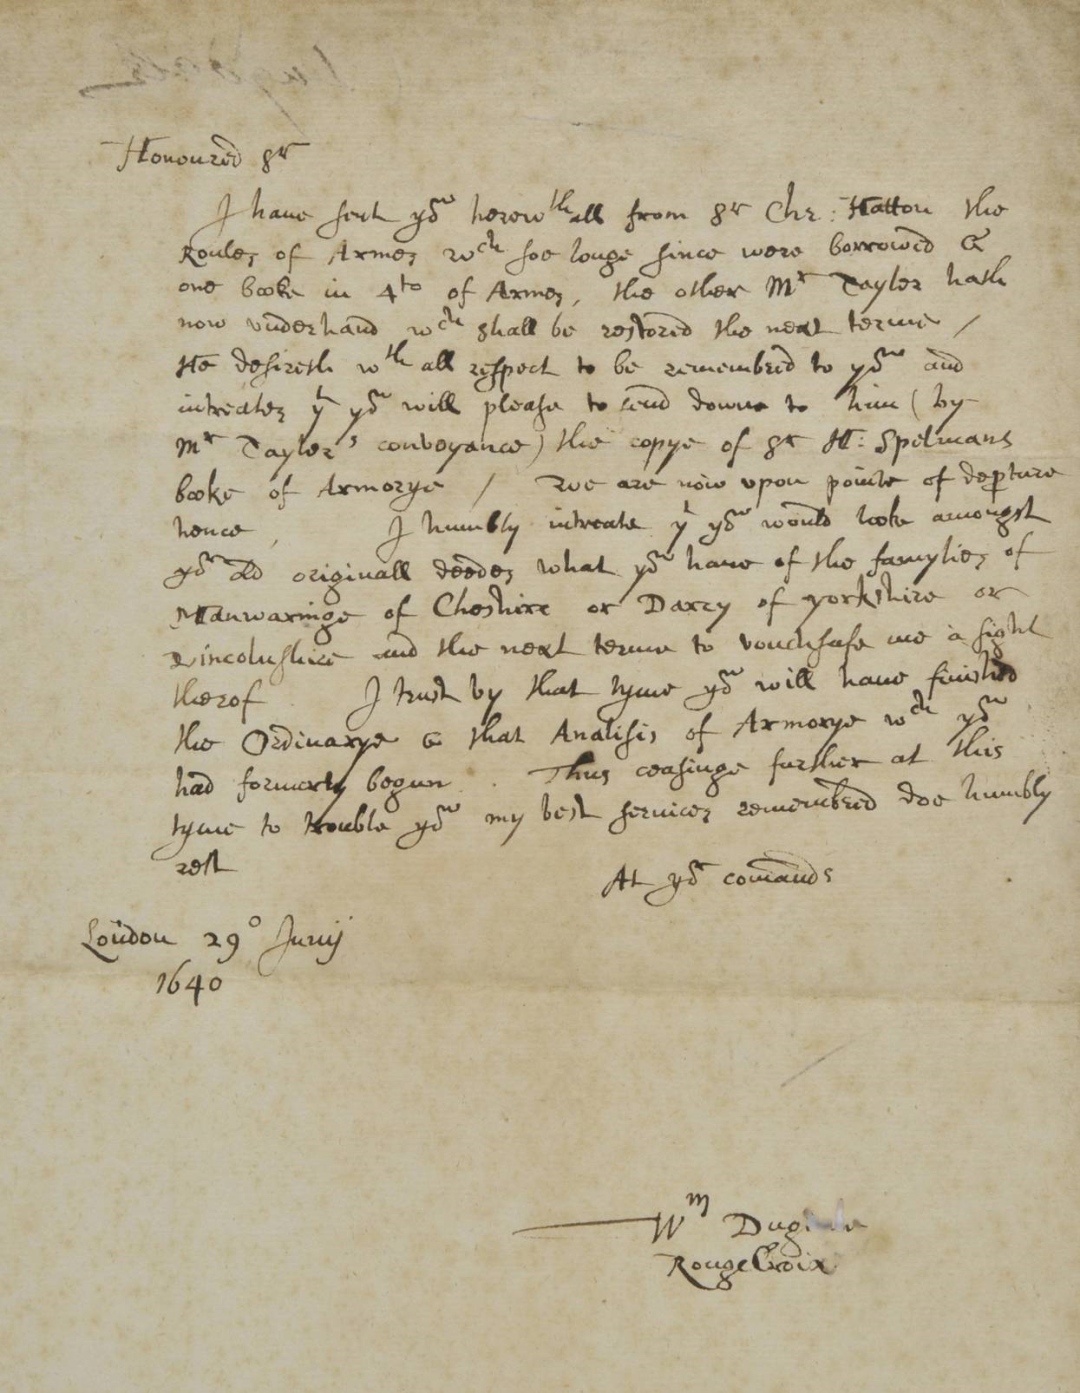 Honoured Sr
I have sent you herewth all from Sr Chr: Hatton the
Roules of Armes wch soe longe since were borrowed &
one booke in 4to of Armes, the other Mr Tayler hath
now underhand wch shall be restored the next terme /
He desireth wth all respect to be remembred to you and
intreates yt you will please to send downe to him (by
Mr Tayler's conveyance) the copye of Sr H: Spelmans
booke of Armorye / Wee are now upon pointe of depture
hence, I humbly intreate yt you would looke amongst
your old originall deedes what you have of the famylies of
Manwaringe of Cheshire or Darcy of yorkshire or
Lincolnshire and the next terme to vouchsafe me a sight
therof I trust by that tyme you will have finished
the Ordinarye & that Analisis of Armorye wch you
had formerly begun. Thus ceasinge further at this
tyme to trouble you my best services remembred doe humbly
rest
At your comands
London 29o Junij
1640
Wm Dugdale
Rouge Croix